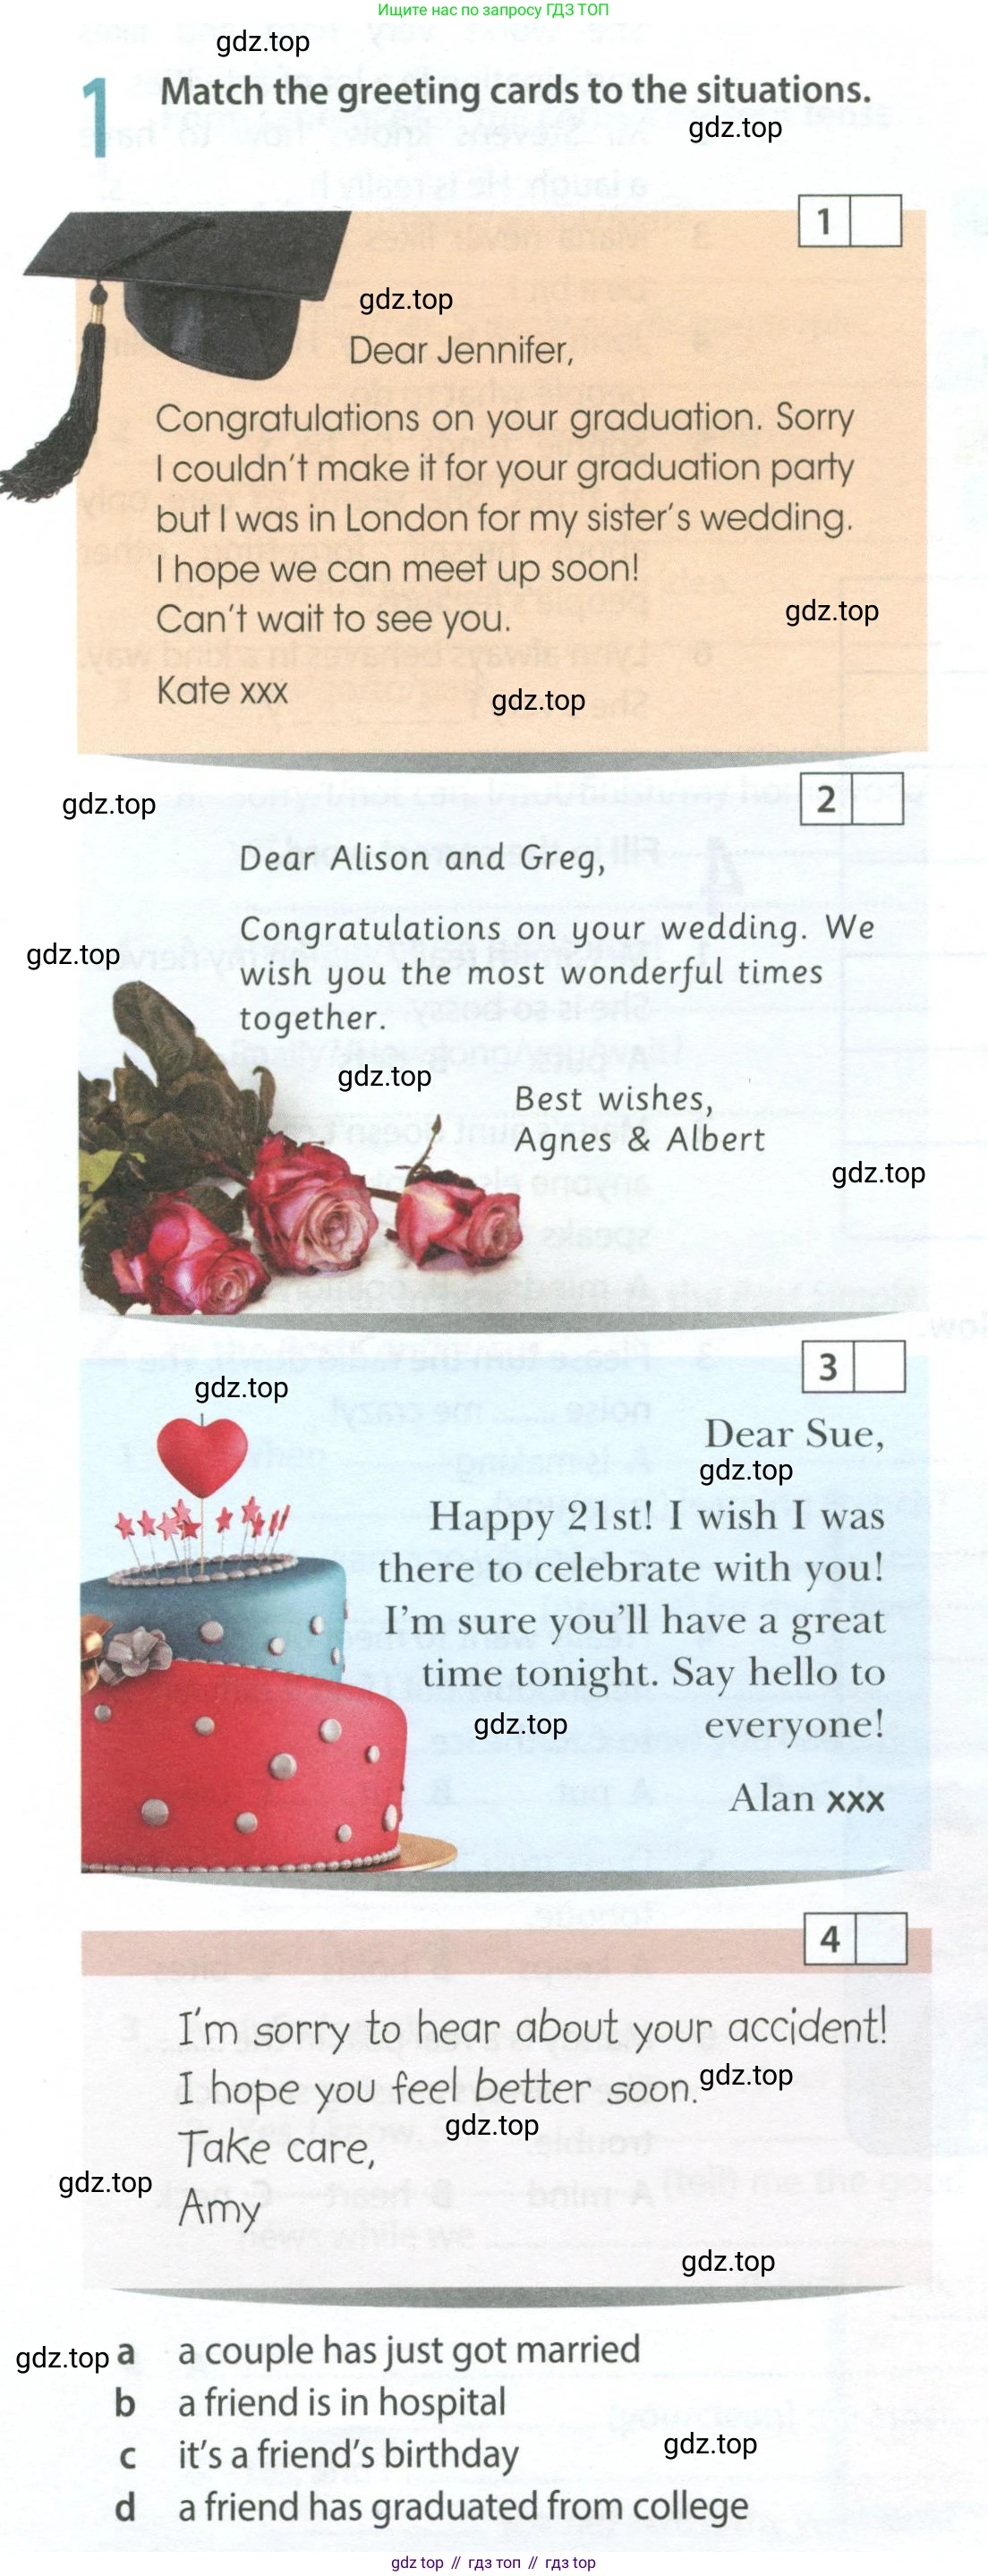 Ищите нас по запросу ГДЗ ТОП
gdz.top
1 Match the greeting cards to the situations.
gdz.top
1
gdz.top
Dear Jennifer,
Congratulations on your graduation. Sorry
I couldn't make it for your graduation party
but I was in London for my sister's wedding.
I hope we can meet up soon!
gdz.top
Can't wait to see you.
Kate xxx
gdz.top
2
gdz.top
Dear Alison and Greg,
Congratulations on your wedding. We
gdz.top
wish you the most wonderful times
together.
gdz.top
Best wishes,
Agnes & Albert
gdz.top
3
gdz.top
Dear Sue,
gdz.top
Happy 21st! I wish I was
there to celebrate with you!
I'm sure you'll have a great
time tonight. Say hello to
gdz.top
everyone!
Alan xxx
4
I'm sorry to hear about your accident!
I hope you feel better soon.
gdz.top
gdz.top
Take care,
gdz.top
Amy
gdz.top
gdz.top
a a couple has just got married
b a friend is in hospital
gdz.top
c it's a friend's birthday
d a friend has graduated from college
gdz top // гдз топ // гдз top